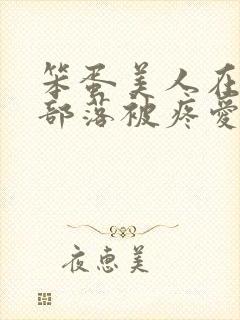 笨蛋美人在
部落被疼爱
夜恵美